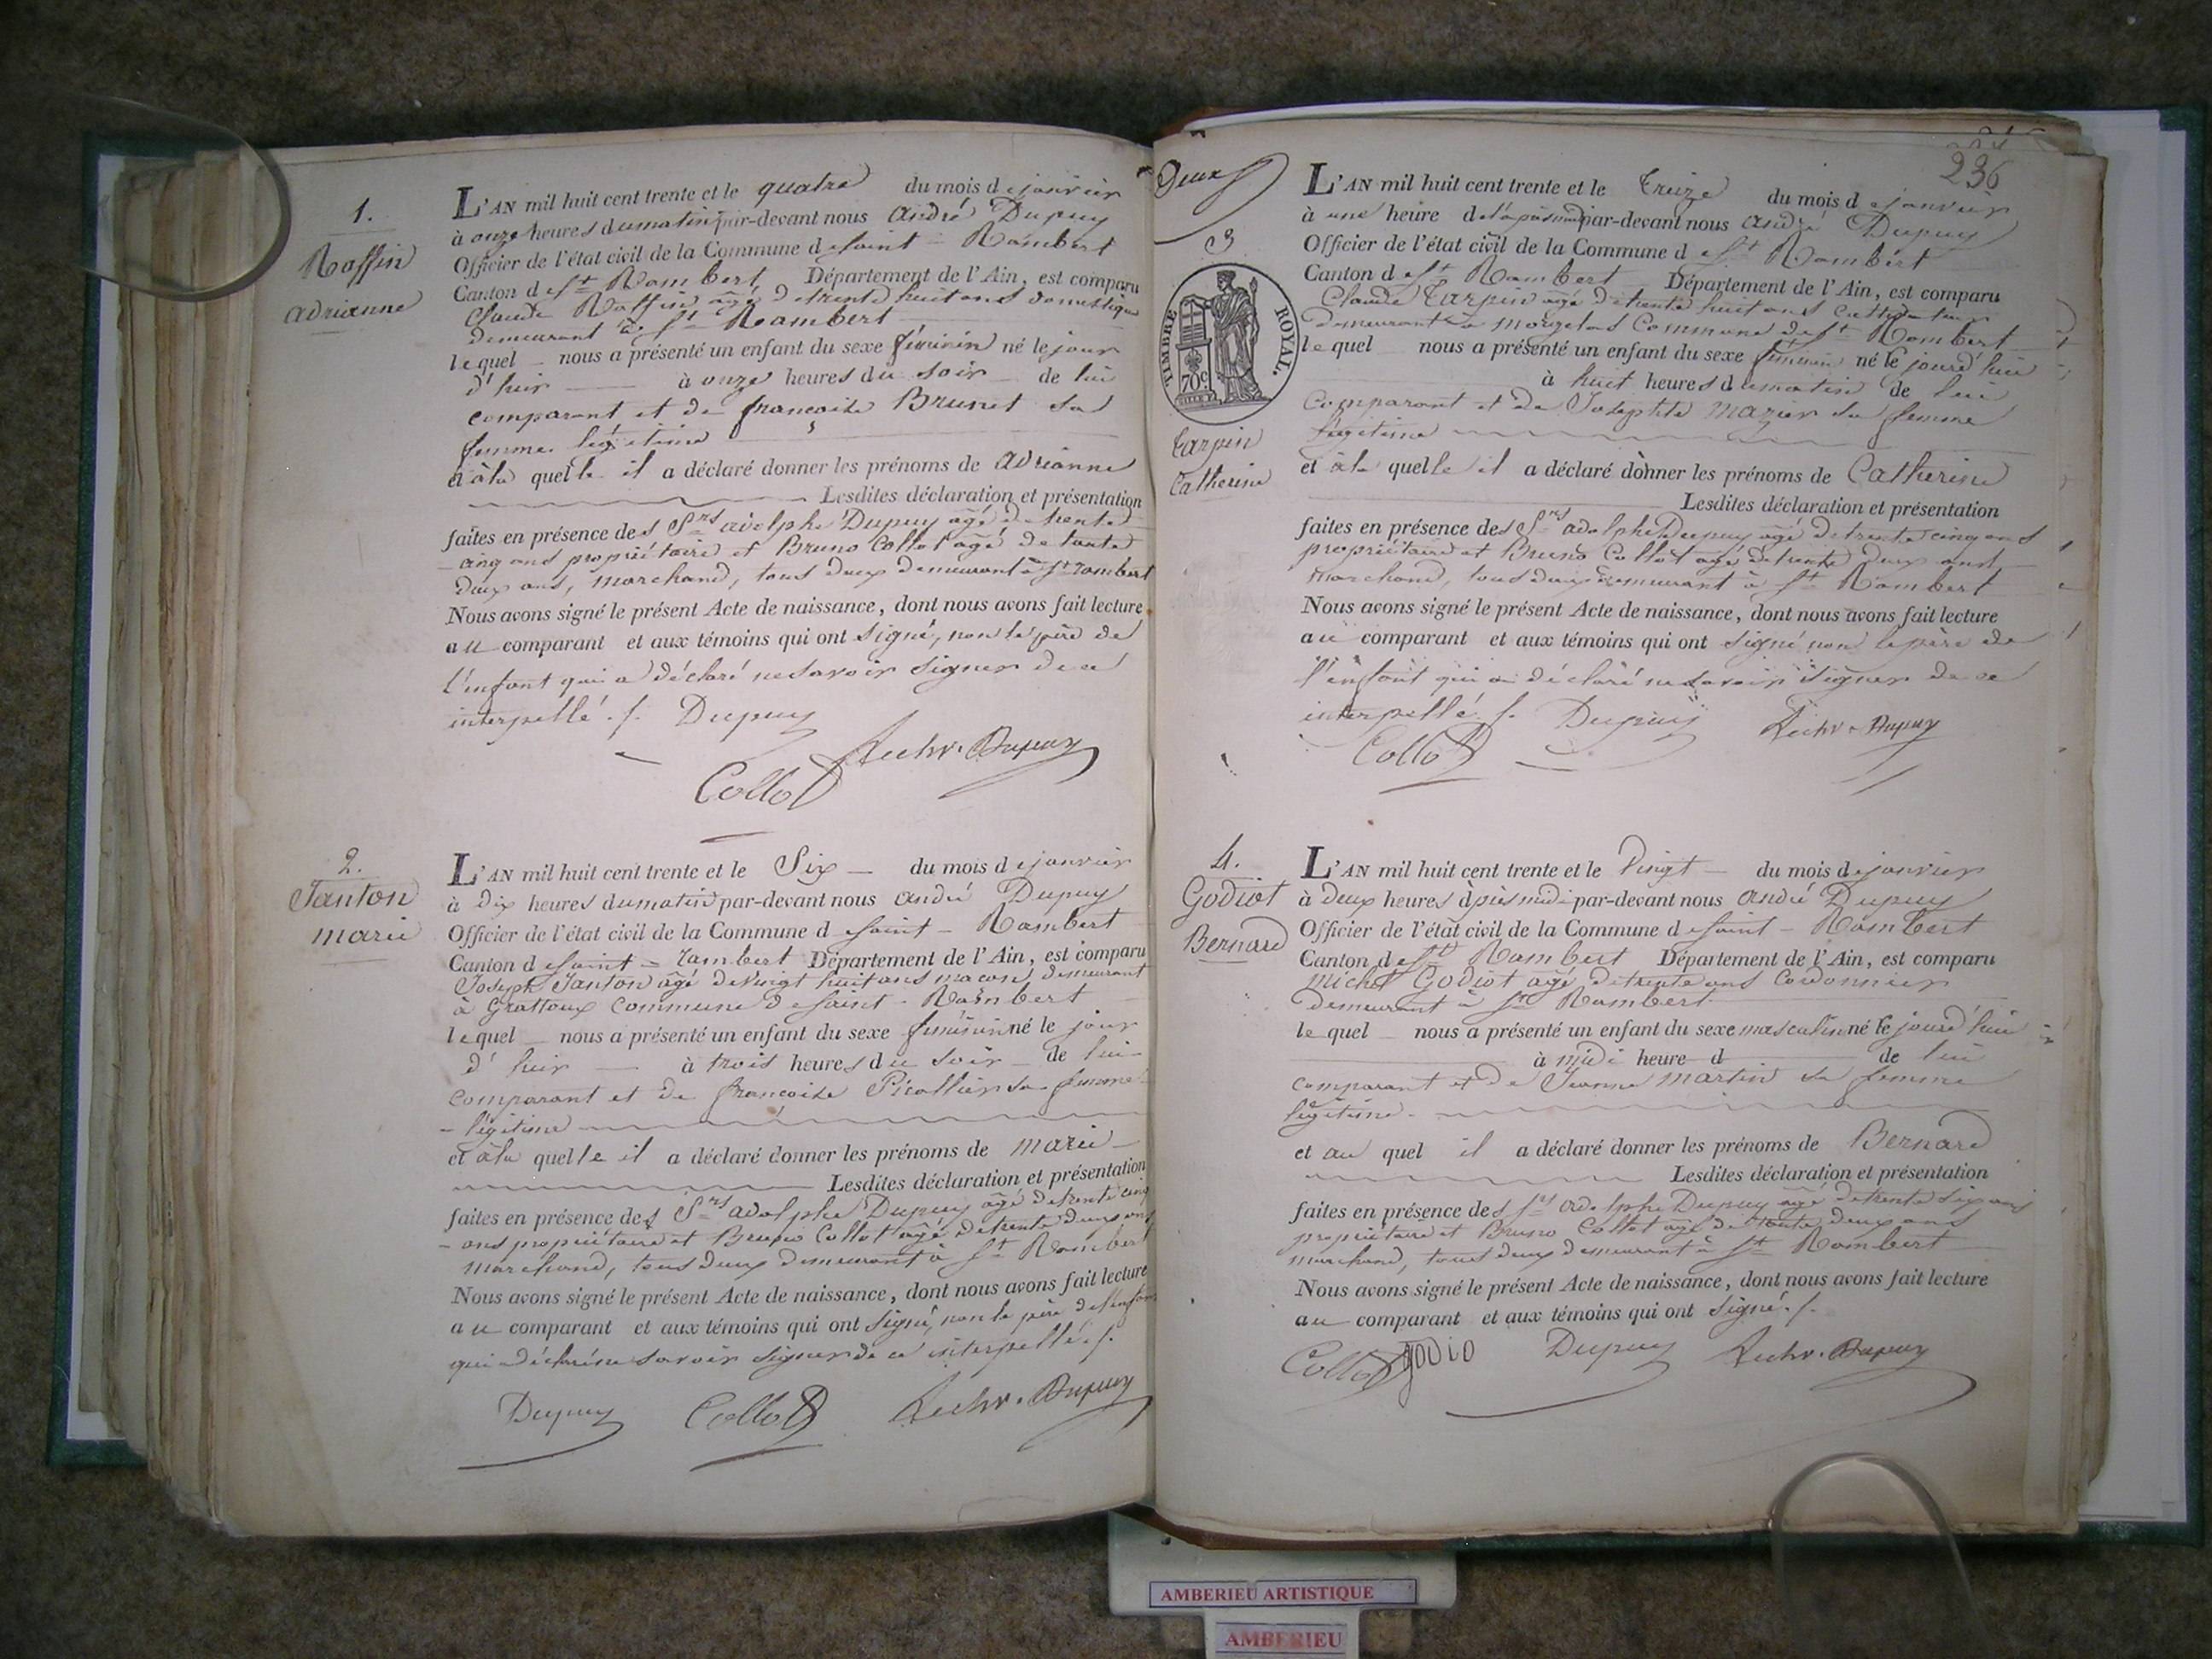 1.
Roffin
adrianne
L'AN mil huit cent trente et le quatre du mois de janvier
à onze heures du matin par-devant nous André Dupuy
Officier de l'état civil de la Commune de saint-Rambert
Canton de St Rambert Département de l'Ain, est comparu
Claude Roffin âgé de trente huit ans domestique
demeurant à St Rambert
lequel nous a présenté un enfant du sexe féminin né le jour
d'hier à onze heures du soir de lui
comparant et de françoise Brunet sa
femme légitime
et à la quelle il a déclaré donner les prénoms de adrianne
Lesdites déclaration et présentation
faites en présence des Srs adolphe Dupuy âgé de trente
cinq ans propriétaire et Bruno Collot âgé de trente
deux ans, marchand, tous deux demeurant à St rambert
Nous avons signé le présent Acte de naissance, dont nous avons fait lecture
au comparant et aux témoins qui ont signé, non le père de
l'enfant qui a déclaré ne savoir signer de ce
interpellé ./. Dupuy
Dupuy
Collot
2.
Janton
marie
L'AN mil huit cent trente et le Six du mois de janvier
à dix heures du matin par-devant nous andré Dupuy
Officier de l'état civil de la Commune de saint-Rambert
Canton de saint-rambert Département de l'Ain, est comparu
Joseph Janton âgé de vingt huit ans maçon demeurant
à Grattoux commune de saint-Rambert
lequel nous a présenté un enfant du sexe féminin né le jour
d'hier à trois heures du soir de lui
comparant et de françoise sa femme
légitime
et à la quelle il a déclaré donner les prénoms de marie
Lesdites déclaration et présentation
faites en présence des Srs adolphe Dupuy âgé de trente cinq
ans propriétaire et Bruno Collot âgé de trente deux ans
marchand, tous deux demeurant à St Rambert
Nous avons signé le présent Acte de naissance, dont nous avons fait lecture
au comparant et aux témoins qui ont signé, non le père de l'enfant
qui a déclaré ne savoir signer de ce interpellé ./.
Dupuy Collot Dupuy
Deux
236
3
TIMBRE ROYAL.
70c
Tarpin
Catherine
L'AN mil huit cent trente et le treize du mois de janvier
à une heure de l'après midi par-devant nous andré Dupuy
Officier de l'état civil de la Commune de St Rambert
Canton de St Rambert Département de l'Ain, est comparu
Claude Tarpin âgé de trente huit ans cultivateur
demeurant à morgelas Commune de St Rambert
lequel nous a présenté un enfant du sexe féminin né le jourd'hui
à huit heures du matin de lui
comparant et de Josephte mazier sa femme
légitime
et à la quelle il a déclaré donner les prénoms de Catherine
Lesdites déclaration et présentation
faites en présence des Srs adolphe Dupuy âgé de trente cinq ans
propriétaire et Bruno Collot âgé de trente deux ans
marchand, tous deux demeurant à St Rambert
Nous avons signé le présent Acte de naissance, dont nous avons fait lecture
au comparant et aux témoins qui ont signé non le père de
l'enfant qui a déclaré ne savoir signer de ce
interpellé ./. Dupuy Dupuy
Collot
4.
Godiot
Bernard
L'AN mil huit cent trente et le Vingt du mois de janvier
à deux heures après midi par-devant nous andré Dupuy
Officier de l'état civil de la Commune de saint-Rambert
Canton de St Rambert Département de l'Ain, est comparu
michel Godiot âgé de trente ans Cordonnier
demeurant à St Rambert
lequel nous a présenté un enfant du sexe masculin né le jourd'hui
à midi heure d de lui
comparant et de Jeanne martin sa femme
légitime
et au quel il a déclaré donner les prénoms de Bernard
Lesdites déclaration et présentation
faites en présence des Srs adolphe Dupuy âgé de trente six ans
propriétaire et Bruno Collot âgé de trente deux ans
marchand, tous deux demeurant à St Rambert
Nous avons signé le présent Acte de naissance, dont nous avons fait lecture
au comparant et aux témoins qui ont signé ./.
Collot godio Dupuy Dupuy
AMBERIEU ARTISTIQUE
AMBERIEU